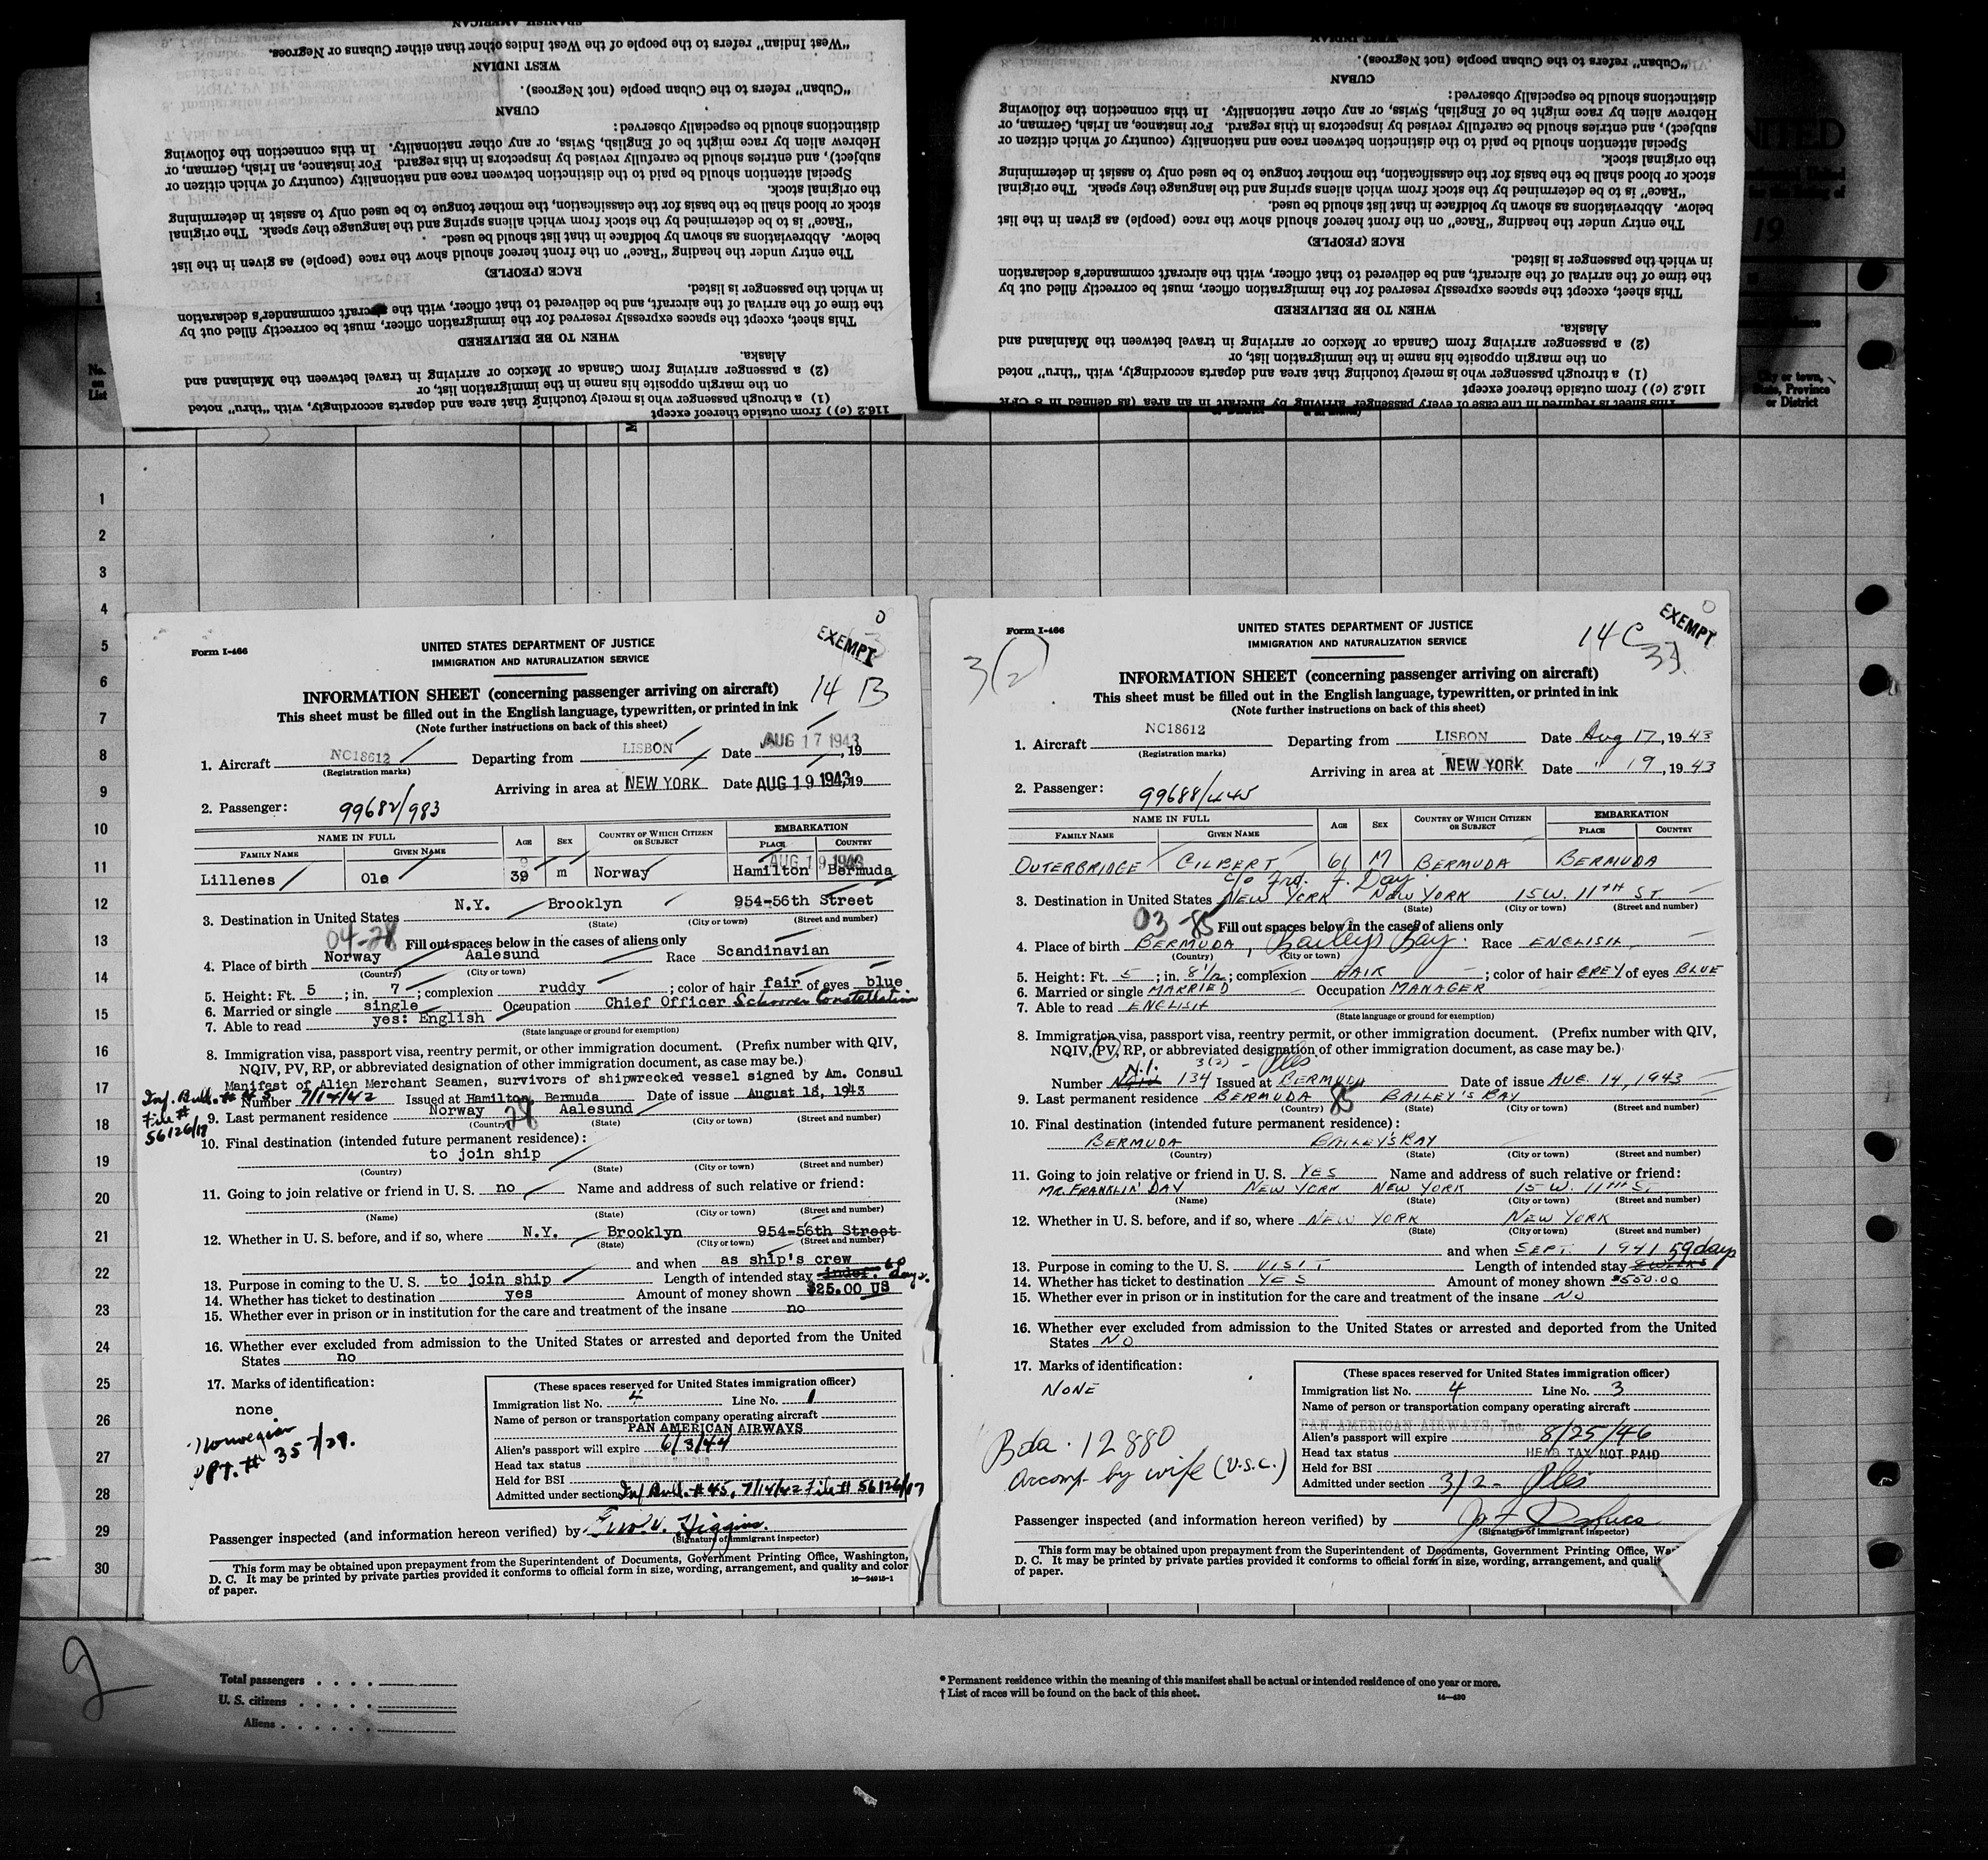 SPANISH AMERICAN
"West Indian" refers to the people of the West Indies other than either Cubans or Negroes.
WEST INDIAN
"Cuban" refers to the Cuban people (not Negroes).
CUBAN
distinctions should be especially observed:
Hebrew alien by race might be of English, Swiss, or any other nationality. In this connection the following
subject), and entries should be carefully revised by inspectors in this regard. For instance, an Irish, German, or
Special attention should be paid to the distinction between race and nationality (country of which citizen or
the original stock.
stock or blood shall be the basis for the classification, the mother tongue to be used only to assist in determining
"Race" is to be determined by the stock from which aliens spring and the language they speak. The original
below. Abbreviations as shown by boldface in that list should be used.
The entry under the heading "Race" on the front hereof should show the race (people) as given in the list
RACE (PEOPLE)
in which the passenger is listed.
the time of the arrival of the aircraft, and be delivered to that officer, with the aircraft commander's declaration
This sheet, except the spaces expressly reserved for the immigration officer, must be correctly filled out by
WHEN TO BE DELIVERED
Alaska.
(2) a passenger arriving from Canada or Mexico or arriving in travel between the Mainland and
on the margin opposite his name in the immigration list, or
(1) a through passenger who is merely touching that area and departs accordingly, with "thru" noted
116.2 (c)) from outside thereof except
WEST INDIAN
"Cuban" refers to the Cuban people (not Negroes).
CUBAN
distinctions should be especially observed:
Hebrew alien by race might be of English, Swiss, or any other nationality. In this connection the following
subject), and entries should be carefully revised by inspectors in this regard. For instance, an Irish, German, or
Special attention should be paid to the distinction between race and nationality (country of which citizen or
the original stock.
stock or blood shall be the basis for the classification, the mother tongue to be used only to assist in determining
"Race" is to be determined by the stock from which aliens spring and the language they speak. The original
below. Abbreviations as shown by boldface in that list should be used.
The entry under the heading "Race" on the front hereof should show the race (people) as given in the list
RACE (PEOPLE)
in which the passenger is listed.
the time of the arrival of the aircraft, and be delivered to that officer, with the aircraft commander's declaration
This sheet, except the spaces expressly reserved for the immigration officer, must be correctly filled out by
WHEN TO BE DELIVERED
Alaska.
(2) a passenger arriving from Canada or Mexico or arriving in travel between the Mainland and
on the margin opposite his name in the immigration list, or
(1) a through passenger who is merely touching that area and departs accordingly, with "thru" noted
116.2 (c)) from outside thereof except
This sheet is required in the case of every passenger arriving by aircraft in an area (as defined in 8 CFR
19
No. on List
City or town, State, Province or District
1
2
3
4
5
6
7
8
9
10
11
12
13
14
15
16
17
18
19
20
21
22
23
24
25
26
27
28
29
30
0
EXEMPT
Form I-466
UNITED STATES DEPARTMENT OF JUSTICE
IMMIGRATION AND NATURALIZATION SERVICE
14 B
INFORMATION SHEET (concerning passenger arriving on aircraft)
This sheet must be filled out in the English language, typewritten, or printed in ink
(Note further instructions on back of this sheet)
1. Aircraft NC18612 Departing from LISBON Date AUG 17 1943, 19
(Registration marks)
Arriving in area at NEW YORK Date AUG 19 1943, 19
2. Passenger: 99682/983
NAME IN FULL AGE SEX COUNTRY OF WHICH CITIZEN OR SUBJECT EMBARKATION
FAMILY NAME GIVEN NAME PLACE COUNTRY
AUG 19 1943
Lillenes Ole 39 m Norway Hamilton Bermuda
3. Destination in United States N.Y. Brooklyn 954-56th Street
(State) (City or town) (Street and number)
04-28 Fill out spaces below in the cases of aliens only
4. Place of birth Norway Aalesund Race Scandinavian
(Country) (City or town)
5. Height: Ft. 5; in. 7; complexion ruddy; color of hair fair of eyes blue
6. Married or single single Occupation Chief Officer Schooner Constellation
7. Able to read yes: English
(State language or ground for exemption)
8. Immigration visa, passport visa, reentry permit, or other immigration document. (Prefix number with QIV,
NQIV, PV, RP, or abbreviated designation of other immigration document, as case may be.)
Manifest of Alien Merchant Seamen, survivors of shipwrecked vessel signed by Am. Consul
Inf. Bull. # 45 Number 7/14/42 Issued at Hamilton, Bermuda Date of issue August 18, 1943
File # 56126/17
9. Last permanent residence Norway 28 Aalesund
(Country) (State) (City or town) (Street and number)
10. Final destination (intended future permanent residence):
to join ship
(Country) (State) (City or town) (Street and number)
11. Going to join relative or friend in U. S. no Name and address of such relative or friend:
(Name) (State) (City or town) (Street and number)
12. Whether in U. S. before, and if so, where N.Y. Brooklyn 954-56th Street
(State) (City or town) (Street and number)
and when as ship's crew
13. Purpose in coming to the U. S. to join ship Length of intended stay indef. 60 days.
14. Whether has ticket to destination yes Amount of money shown $25.00 US
15. Whether ever in prison or in institution for the care and treatment of the insane no
16. Whether ever excluded from admission to the United States or arrested and deported from the United
States no
17. Marks of identification:
none
Norwegian
PPT. # 357/29.
(These spaces reserved for United States immigration officer)
Immigration list No. 4 Line No. 1
Name of person or transportation company operating aircraft
PAN AMERICAN AIRWAYS
Alien's passport will expire 6/3/44
Head tax status
Held for BSI
Admitted under section Inf Bull. #45, 7/14/42 File # 56126/17
Passenger inspected (and information hereon verified) by Higgins.
(Signature of immigrant inspector)
This form may be obtained upon prepayment from the Superintendent of Documents, Government Printing Office, Washington,
D. C. It may be printed by private parties provided it conforms to official form in size, wording, arrangement, and quality and color
of paper.
16—24915-1
0
EXEMPT
Form I-466
3(2)
UNITED STATES DEPARTMENT OF JUSTICE
IMMIGRATION AND NATURALIZATION SERVICE
14 C
33
INFORMATION SHEET (concerning passenger arriving on aircraft)
This sheet must be filled out in the English language, typewritten, or printed in ink
(Note further instructions on back of this sheet)
1. Aircraft NC18612 Departing from LISBON Date Aug 17, 1943
(Registration marks)
Arriving in area at NEW YORK Date " 19, 1943
2. Passenger: 99688/445
NAME IN FULL AGE SEX COUNTRY OF WHICH CITIZEN OR SUBJECT EMBARKATION
FAMILY NAME GIVEN NAME PLACE COUNTRY
OUTERBRIDGE GILBERT 61 M BERMUDA BERMUDA
c/o Frd. F. Day.
3. Destination in United States NEW YORK NEW YORK 15 W. 11TH ST.
(State) (City or town) (Street and number)
03-85 Fill out spaces below in the cases of aliens only
4. Place of birth BERMUDA, Baileys Bay. Race ENGLISH
(Country) (City or town)
5. Height: Ft. 5; in. 8 1/2; complexion HAIR; color of hair GREY of eyes BLUE
6. Married or single MARRIED Occupation MANAGER
7. Able to read ENGLISH
(State language or ground for exemption)
8. Immigration visa, passport visa, reentry permit, or other immigration document. (Prefix number with QIV,
NQIV, PV, RP, or abbreviated designation of other immigration document, as case may be.)
N.I. 3(2) -
Number 134 Issued at BERMUDA Date of issue AUG. 14, 1943
9. Last permanent residence BERMUDA 85 BAILEY'S BAY
(Country) (State) (City or town) (Street and number)
10. Final destination (intended future permanent residence):
BERMUDA BAILEY'S BAY
(Country) (State) (City or town) (Street and number)
11. Going to join relative or friend in U. S. YES Name and address of such relative or friend:
MR. FRANKLIN DAY NEW YORK NEW YORK 15 W. 11TH S.
(Name) (State) (City or town) (Street and number)
12. Whether in U. S. before, and if so, where NEW YORK NEW YORK
(State) (City or town) (Street and number)
and when SEPT. 1941 59 days
13. Purpose in coming to the U. S. VISIT Length of intended stay 8 WEEKS
14. Whether has ticket to destination YES Amount of money shown $550.00
15. Whether ever in prison or in institution for the care and treatment of the insane NO
16. Whether ever excluded from admission to the United States or arrested and deported from the United
States NO
17. Marks of identification:
NONE
Bda. 12880
Accomp. by wife (U.S.C.)
(These spaces reserved for United States immigration officer)
Immigration list No. 4 Line No. 3
Name of person or transportation company operating aircraft
PAN AMERICAN AIRWAYS, Inc.
Alien's passport will expire 8/25/46
Head tax status HEAD TAX NOT PAID
Held for BSI
Admitted under section 3/2 -
Passenger inspected (and information hereon verified) by
(Signature of immigrant inspector)
This form may be obtained upon prepayment from the Superintendent of Documents, Government Printing Office,
D. C. It may be printed by private parties provided it conforms to official form in size, wording, arrangement, and
of paper.
2
Total passengers
U. S. citizens
Aliens
* Permanent residence within the meaning of this manifest shall be actual or intended residence of one year or more.
† List of races will be found on the back of this sheet.
14—430